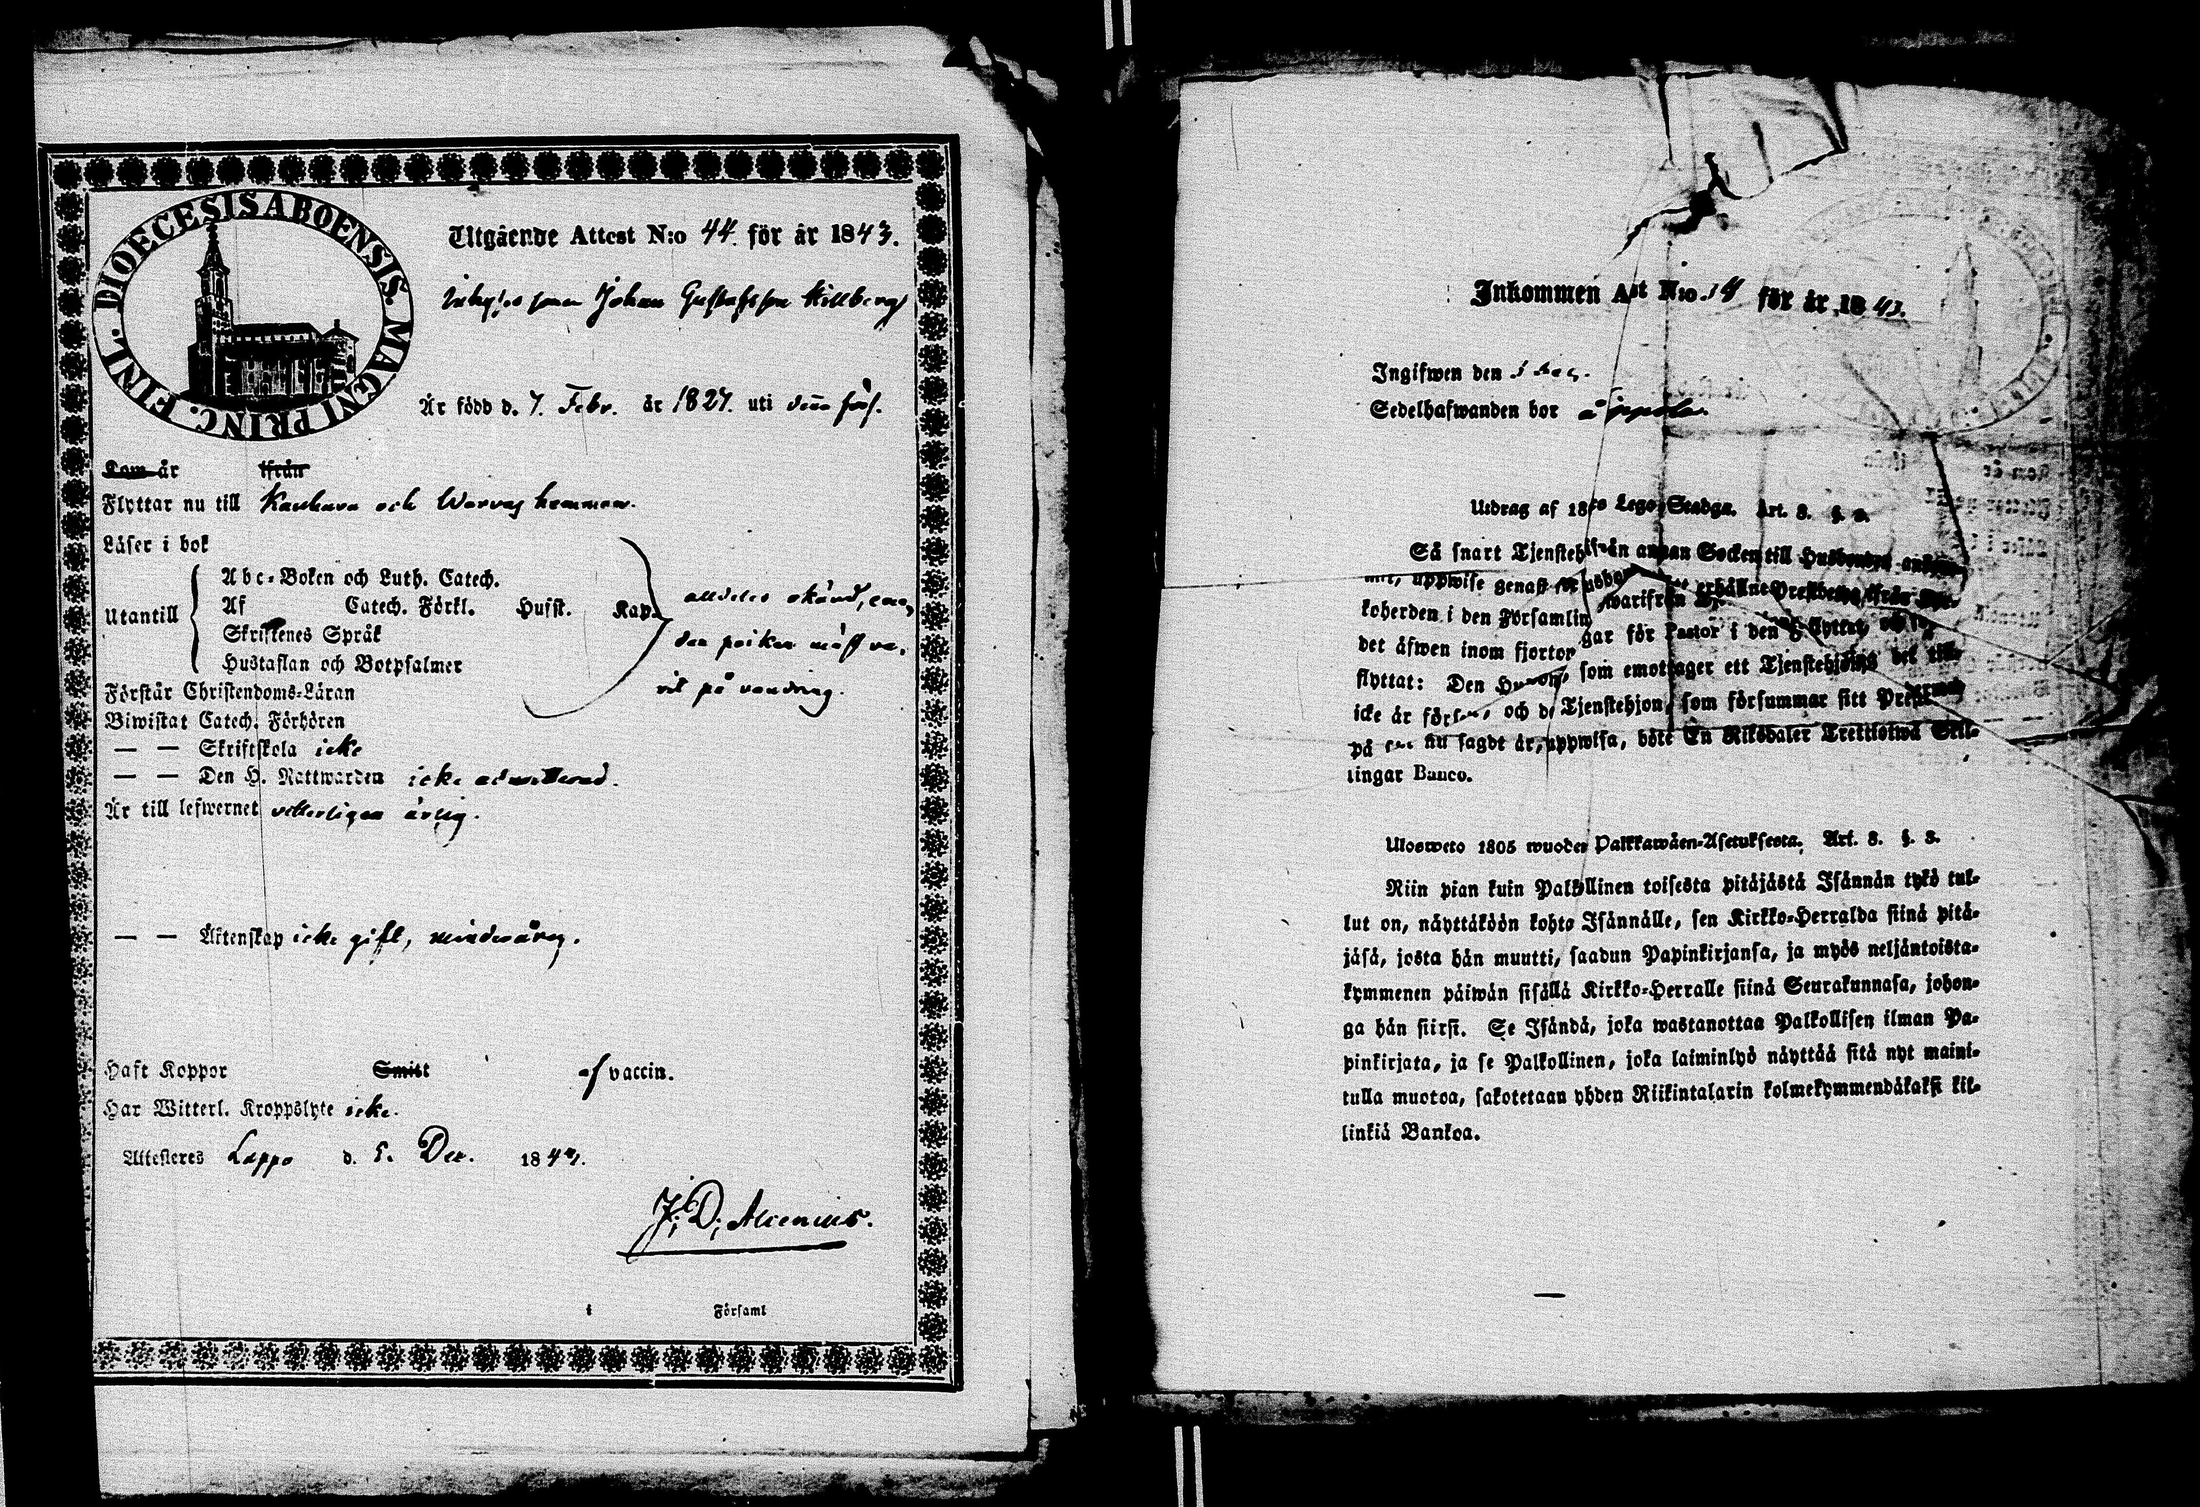 DIOECESIS ABOENSIS. MAGNI PRINC. FINL.
Utgående Attest N:o 44. för år 1843.
Johan Gustafsson Killberg
Är född d. 7. Febr. år 1827. uti
Kom år ifrån
Flyttar nu till Kauhava och hemman.
Läser i bok
Utantill
Abc-Boken och Luth. Catech.
Af Catech. Förkl. Husft. Kap.
Skriftenes Språk
Hustaflan och Botpsalmer
alldeles okänd, emedan
den poiken mäst varit
på vandring.
Förstår Christendoms-Läran
Biwistat Catech. Förhören
— — Skriftskola icke
— — Den H. Nattwarden icke admitterad.
Är till lefwernet vetterligen ärlig.
— — Äktenskap icke gift, minderårig.
Haft Koppor Smitt af vaccin.
Har Witterl. Kroppslyte icke.
Attesteres Lappo d. 5. Dec. 1843.
J. D. Alcenius.
i Församl
Inkommen Att N:o 14 för år 1843.
Ingifwen den
Sedelhafwanden bor å
Utdrag af Lego-Stadga. Art. 8. §. 3.
Så snart Tjensteh ifrån annan Socken till Husbonden
uppwise genast erhållne Prestbetyg ifrån
koherden i den Församling warifrån
det äfwen inom fjorton gar för Pastor i den
flyttat: Den som emottager ett Tjenstehjon
icke är och Tjenstehjon, som försummar sitt
på nu sagdt är, uppwisa, böte En Riksdaler Trettiotwå Skil-
lingar Banco.
Ulosweto 1805 wuoden Palkkawäen-Asetuksesta. Art. 8. §. 3.
Niin pian kuin Palkollinen toisesta pitäjästä Isännän tykö tul-
lut on, näyttäköön kohta Isännälle, sen Kirkko-Herralda siinä pitä-
jäsä, josta hän muutti, saadun Papinkirjansa, ja myös neljäntoista-
kymmenen päiwän sisällä Kirkko-Herralle siinä Seurakunnasa, johon-
ga hän siirsi. Se Isändä, joka wastanottaa Palkollisen ilman Pa-
pinkirjata, ja se Palkollinen, joka laiminlyö näyttää sitä nyt maini-
tulla muotoa, sakotetaan yhden Riikintalarin kolmekymmendäkaksi kil-
linkiä Bankoa.